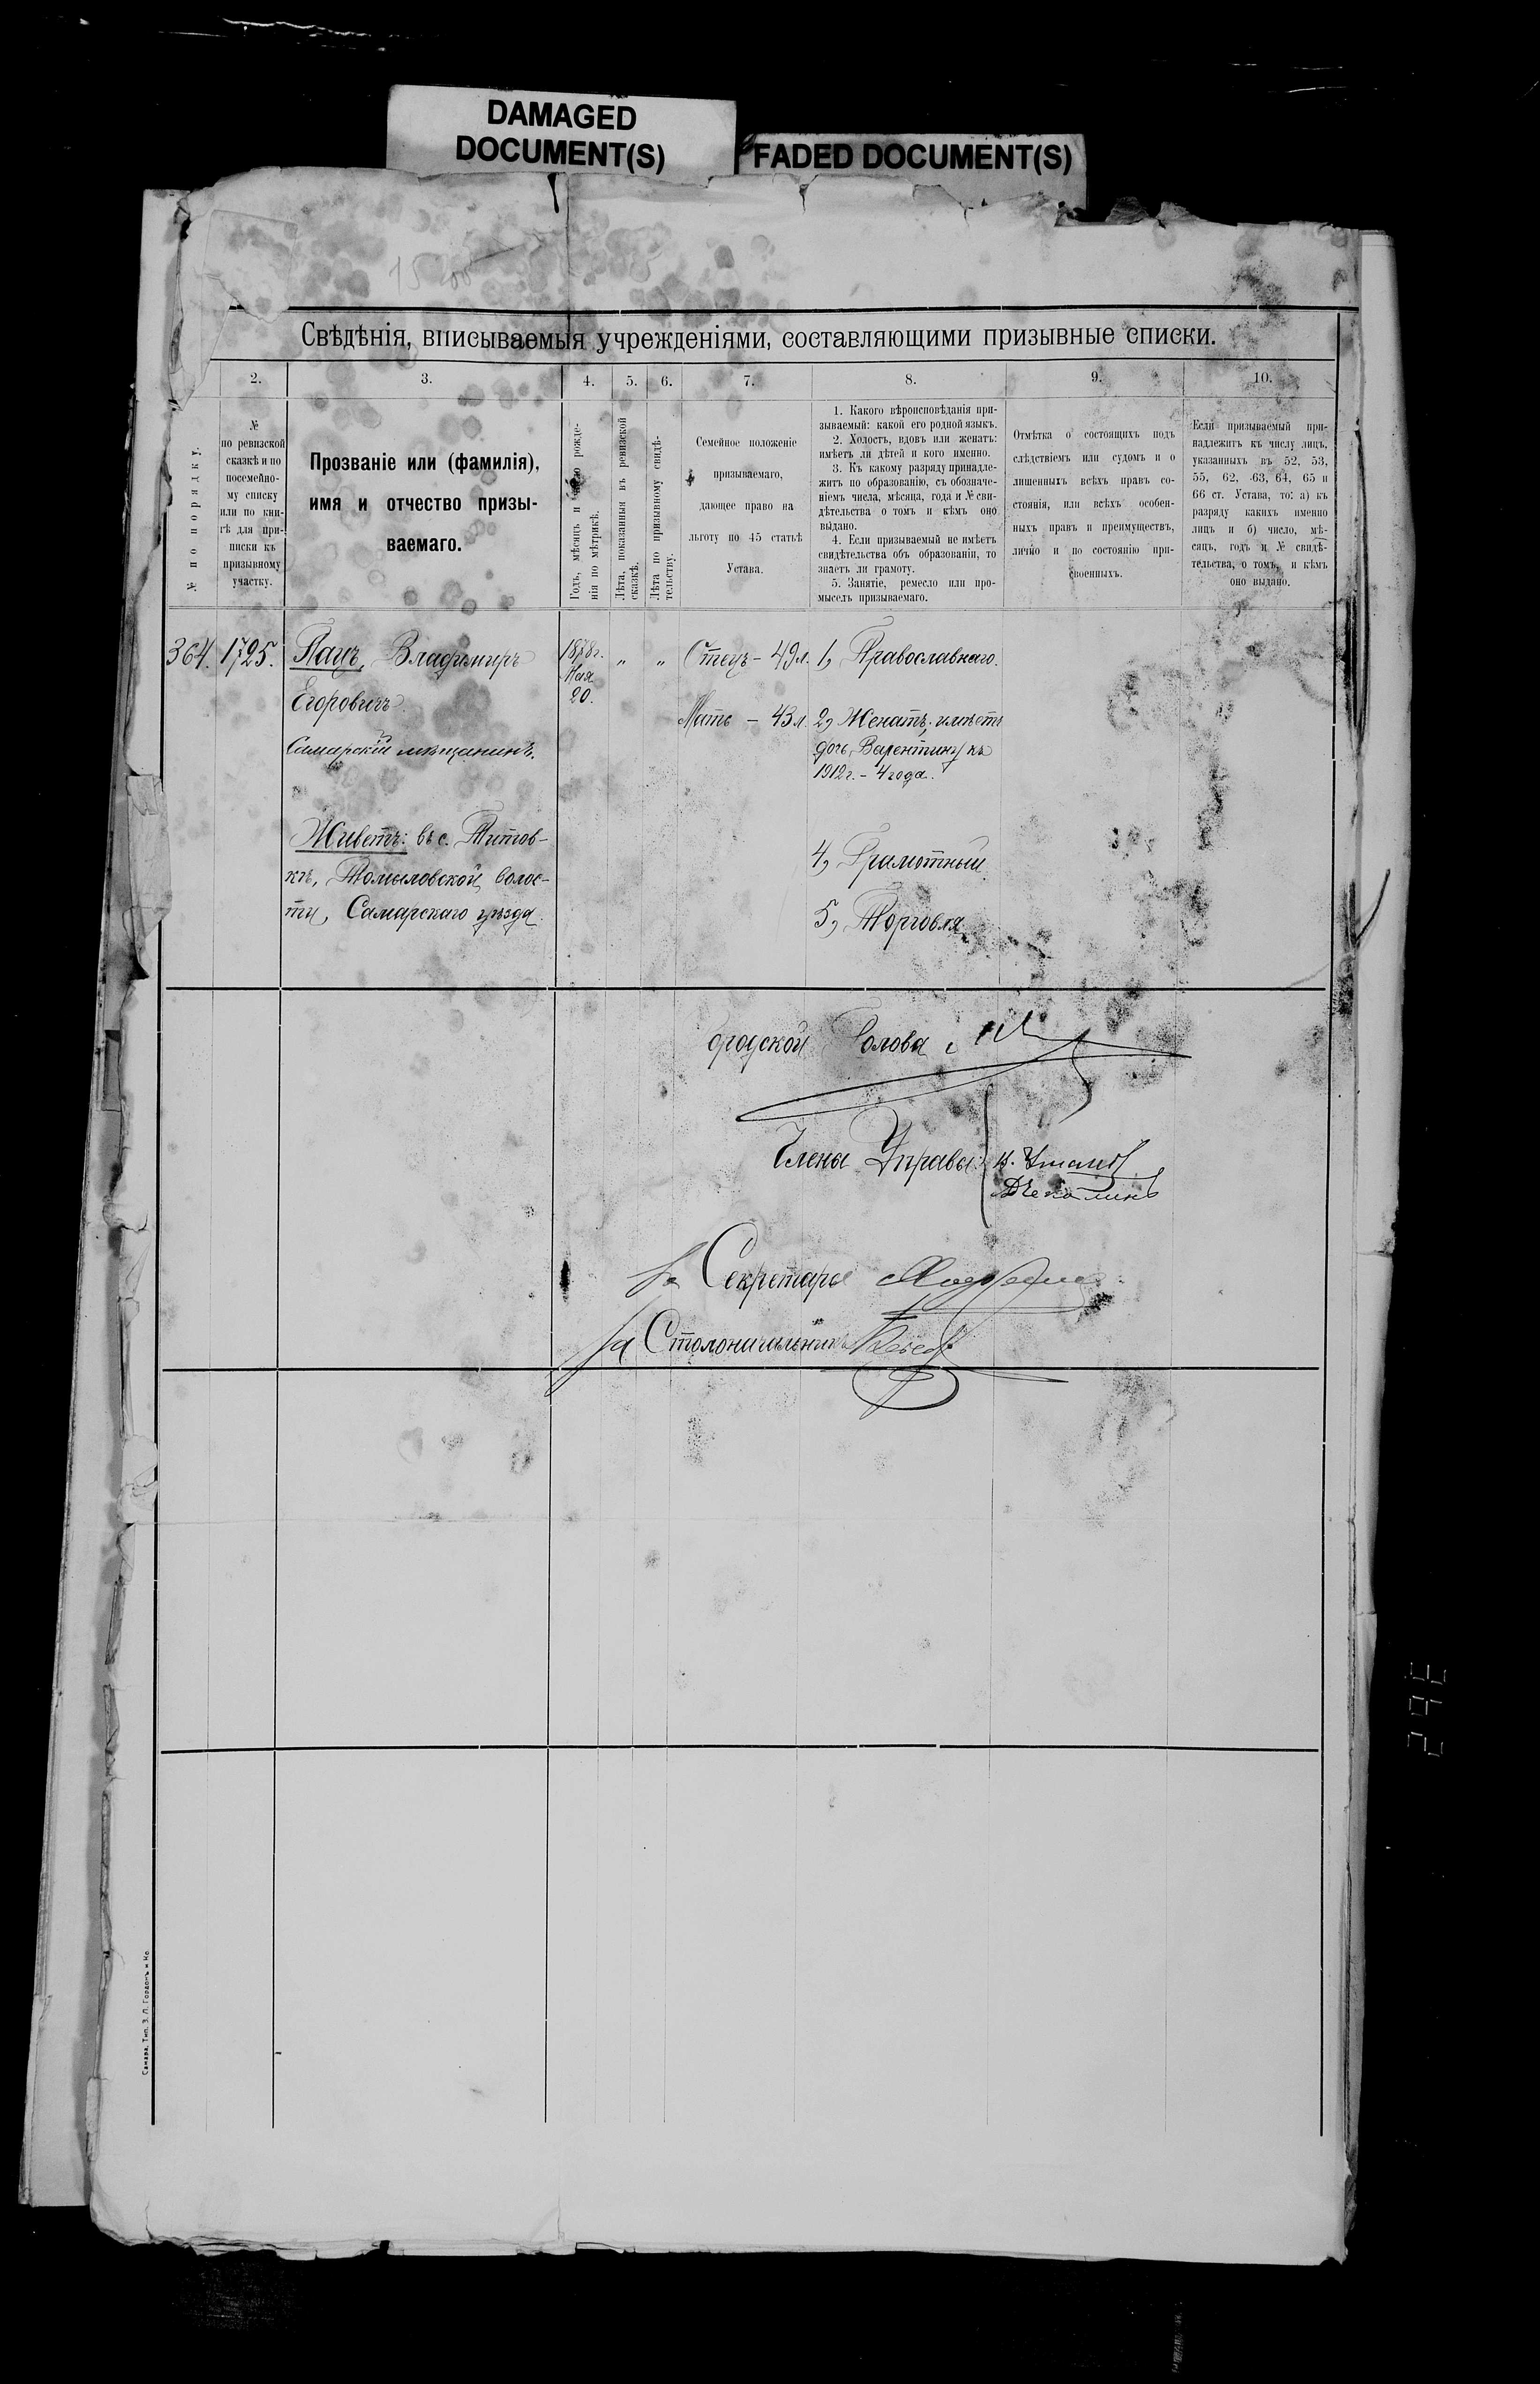 DAMAGED
DOCUMENT(S)
FADED DOCUMENT(S)
Свѣдѣнія, вписываемыя учрежденіями, составляющими призывные списки.
2.
3.
4.
5.
6.
7.
8.
9.
10.
№ по порядку.
№
по ревизской
сказкѣ и по
посемейно-
му списку
или по кни-
гѣ для при-
писки къ
призывному
участку.
Прозваніе или (фамилія),
имя и отчество призы-
ваемаго.
Годъ, мѣсяцъ и рожде-
нія по мѣтрикѣ.
Лѣта, показанныя въ ревизской
сказкѣ.
Лѣта по призывному свидѣ-
тельству.
Семейное положеніе
призываемаго,
дающее право на
льготу по 45 статьѣ
Устава.
1. Какого вѣроисповѣданія при-
зываемый: какой его родной языкъ.
2. Холостъ, вдовъ или женатъ:
имѣетъ ли дѣтей и кого именно.
3. Къ какому разряду принадле-
житъ по образованію, съ обозначе-
ніемъ числа, мѣсяца, года и № сви-
дѣтельства о томъ и кѣмъ оно
выдано.
4. Если призываемый не имѣетъ
свидѣтельства объ образованіи, то
знаетъ ли грамоту.
5. Занятіе, ремесло или про-
мыселъ призываемаго.
Отмѣтка о состоящихъ подъ
слѣдствіемъ или судомъ и о
лишенныхъ всѣхъ правъ со-
стоянія, или всѣхъ особен-
ныхъ правъ и преимуществъ,
лично и по состоянію при-
своенныхъ.
Если призываемый при-
надлежитъ къ числу лицъ,
указанныхъ въ 52, 53,
55, 62, 63, 64, 65 и
66 ст. Устава, то: а) къ
разряду какихъ именно
лицъ и б) число, мѣ-
сяцъ, годъ и № свидѣ-
тельства, о томъ, и кѣмъ
оно выдано.
364. 1725. Пацъ, Владимиръ
Егоровичъ
Самарскій мѣщанинъ.
Живетъ: въ с. Титов-
кѣ, Томыловской волос-
ти, Самарскаго уѣзда.
1878г.
Мая
20.
„
„
Отецъ – 49 л.
Мать – 43 л.
1, Православнаго.
2, Женатъ, имѣетъ
дочь Валентину къ
1912г. – 4 года.
4, Грамотный
5, Торговля
Городской Голова
Члены Управы:
За Секретаря
За Столоначальника
Самара. Тип. З. Л. Гордонъ и Ко.